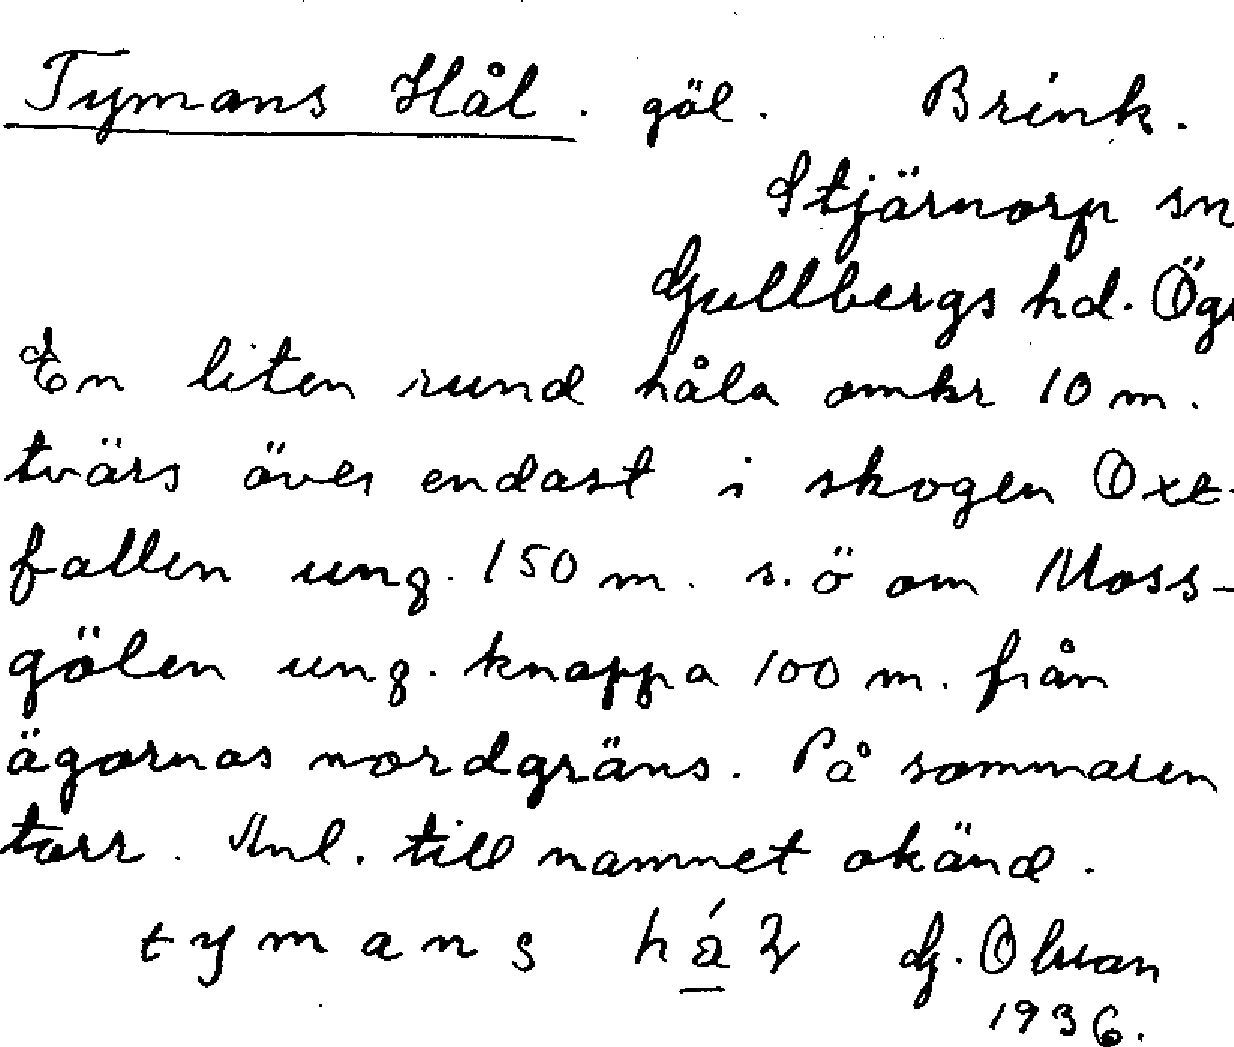 Tymans Hål. göl. Brink.
Stjärnorp sn
Gullbergs hd. Ög
En liten rund håla omkr 10 m.
tvärs över endast i skogen Oxe-
fallen ung. 150 m. s. ö om Moss-
gölen ung. knappa 100 m. från
ägornas nordgräns. På sommaren
torr. Anl. till namnet okänd.
tymans há G. Olsson
1936.